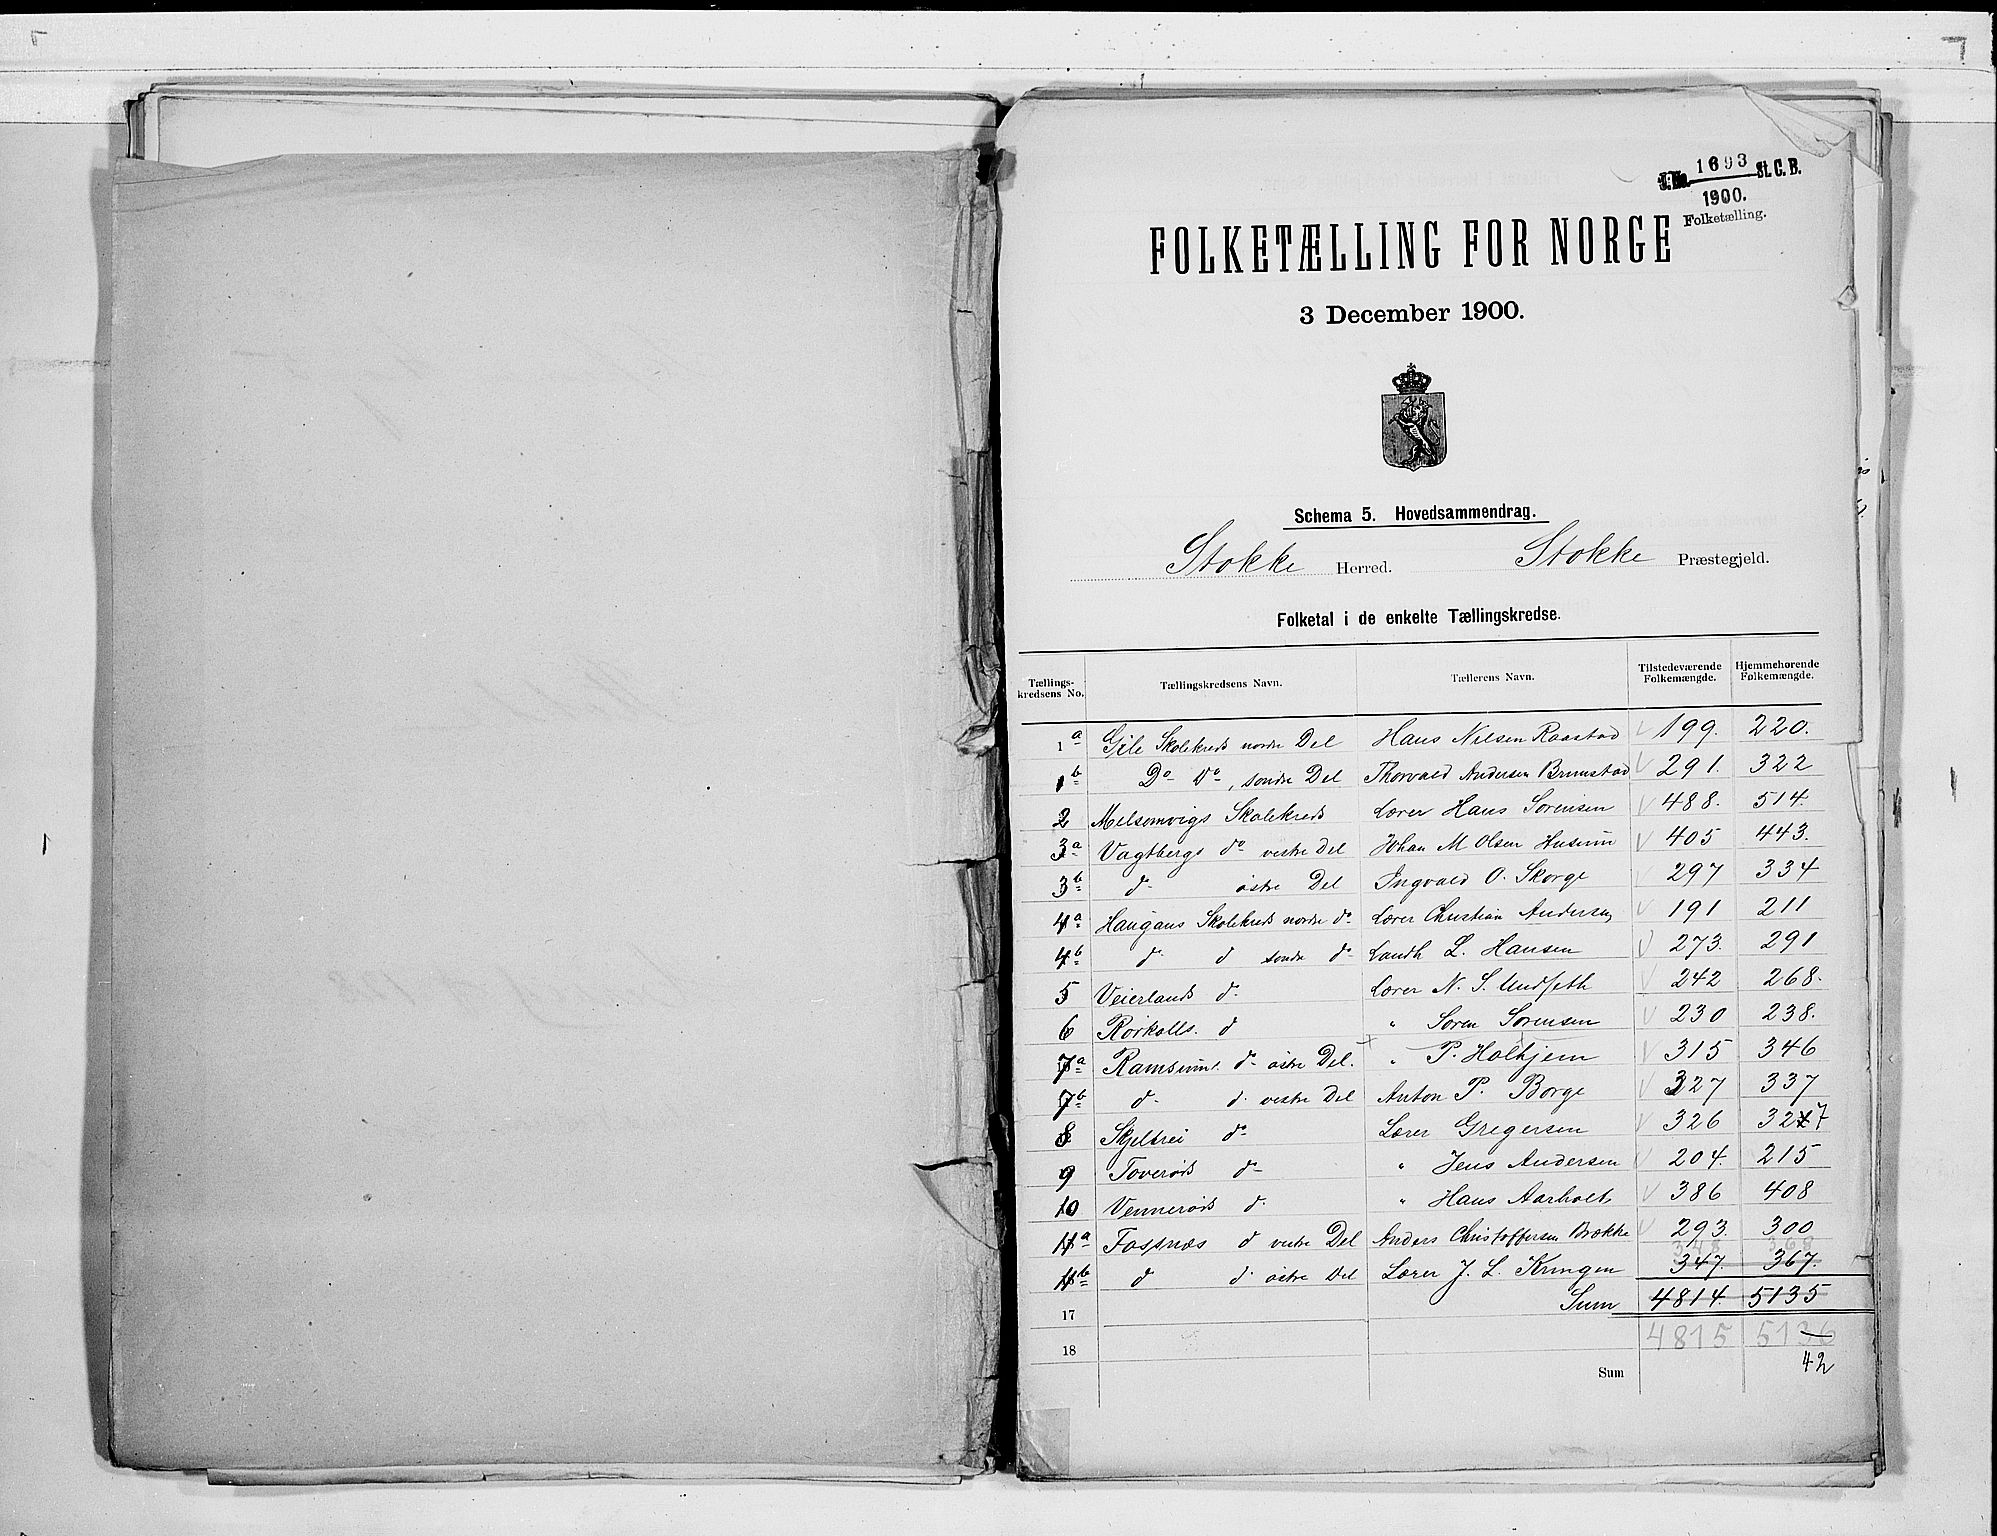 J.No. 1693 St. C. B.
1900.
Folketælling.
FOLKETÆLLING FOR NORGE
3 December 1900.
Schema 5. Hovedsammendrag.
Stokke Herred. Stokke Præstegjeld.
Folketal i de enkelte Tællingskredse.
Tællings-kredsens No. Tællingskredsens Navn. Tællerens Navn. Tilstedeværende Folkemængde. Hjemmehørende Folkemængde.
1a Gile Skolekreds nordre Del Hans Nilsen Raastad 199. 220.
1b Do do, søndre Del Thorvald Andersen Brunstad 291. 322
2 Melsomvigs Skolekreds Lærer Hans Sørensen 488. 514.
3a Vagtbergs do vestre Del Johan M Olsen Husum 405 443.
3b do østre Del Ingvald O. Skorge 297 334
4a Haugans Skolekreds nordre do Lærer Christian Andersen 191 211
4b do d søndre do Landh L. Hansen 273. 291
5 Veierlands d. Lærer N. S. Undseth 242 268.
6 Rørkolls. d " Søren Sørensen 230 238.
7a Ramsum. do østre Del. " P. Holtjem 315 346
7b do d. vestre Del Anton P. Borge 327 337
8 Skjelbrei do Lærer Gregersen 326 327
9 Toverøds do " Jens Andersen 204. 215
10 Vennerøds d. " Hans Aarholt 386 408
11a Fossnæs d vestre Del Anders Christoffersen Brække 293. 300
348 368
11b d d. østre Del Lærer J. L. Kringen 347. 367.
17 Sum 4814. 5135
18 4815 5136
Sum 42